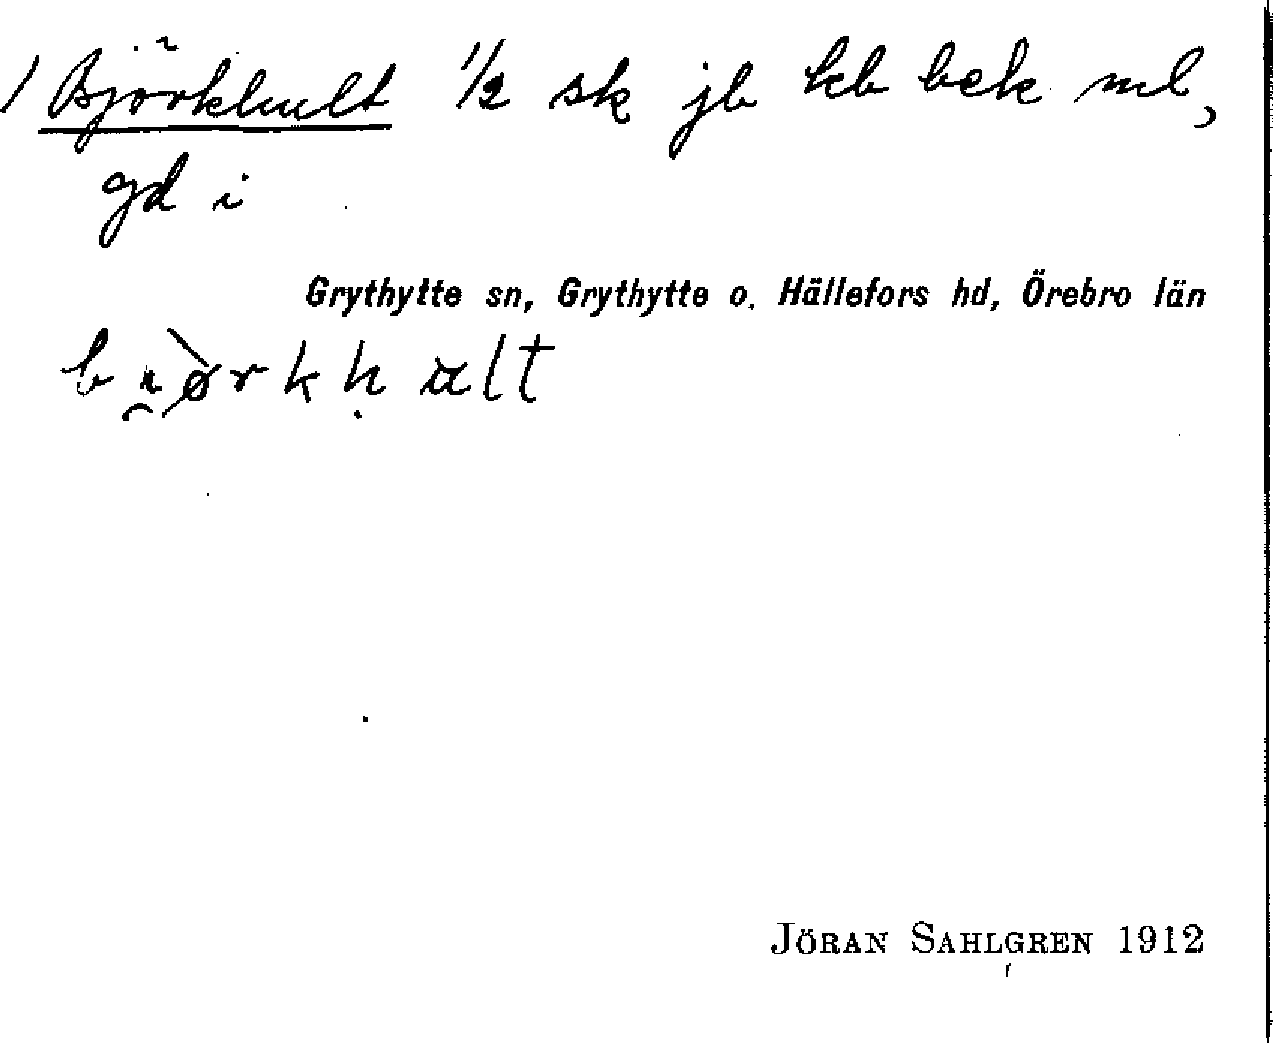 / Björkhult 1/2 sk jb kb bek ml,
gd i
Grythytte sn, Grythytte o. Hällefors hd, Örebro län
JÖRAN SAHLGREN 1912